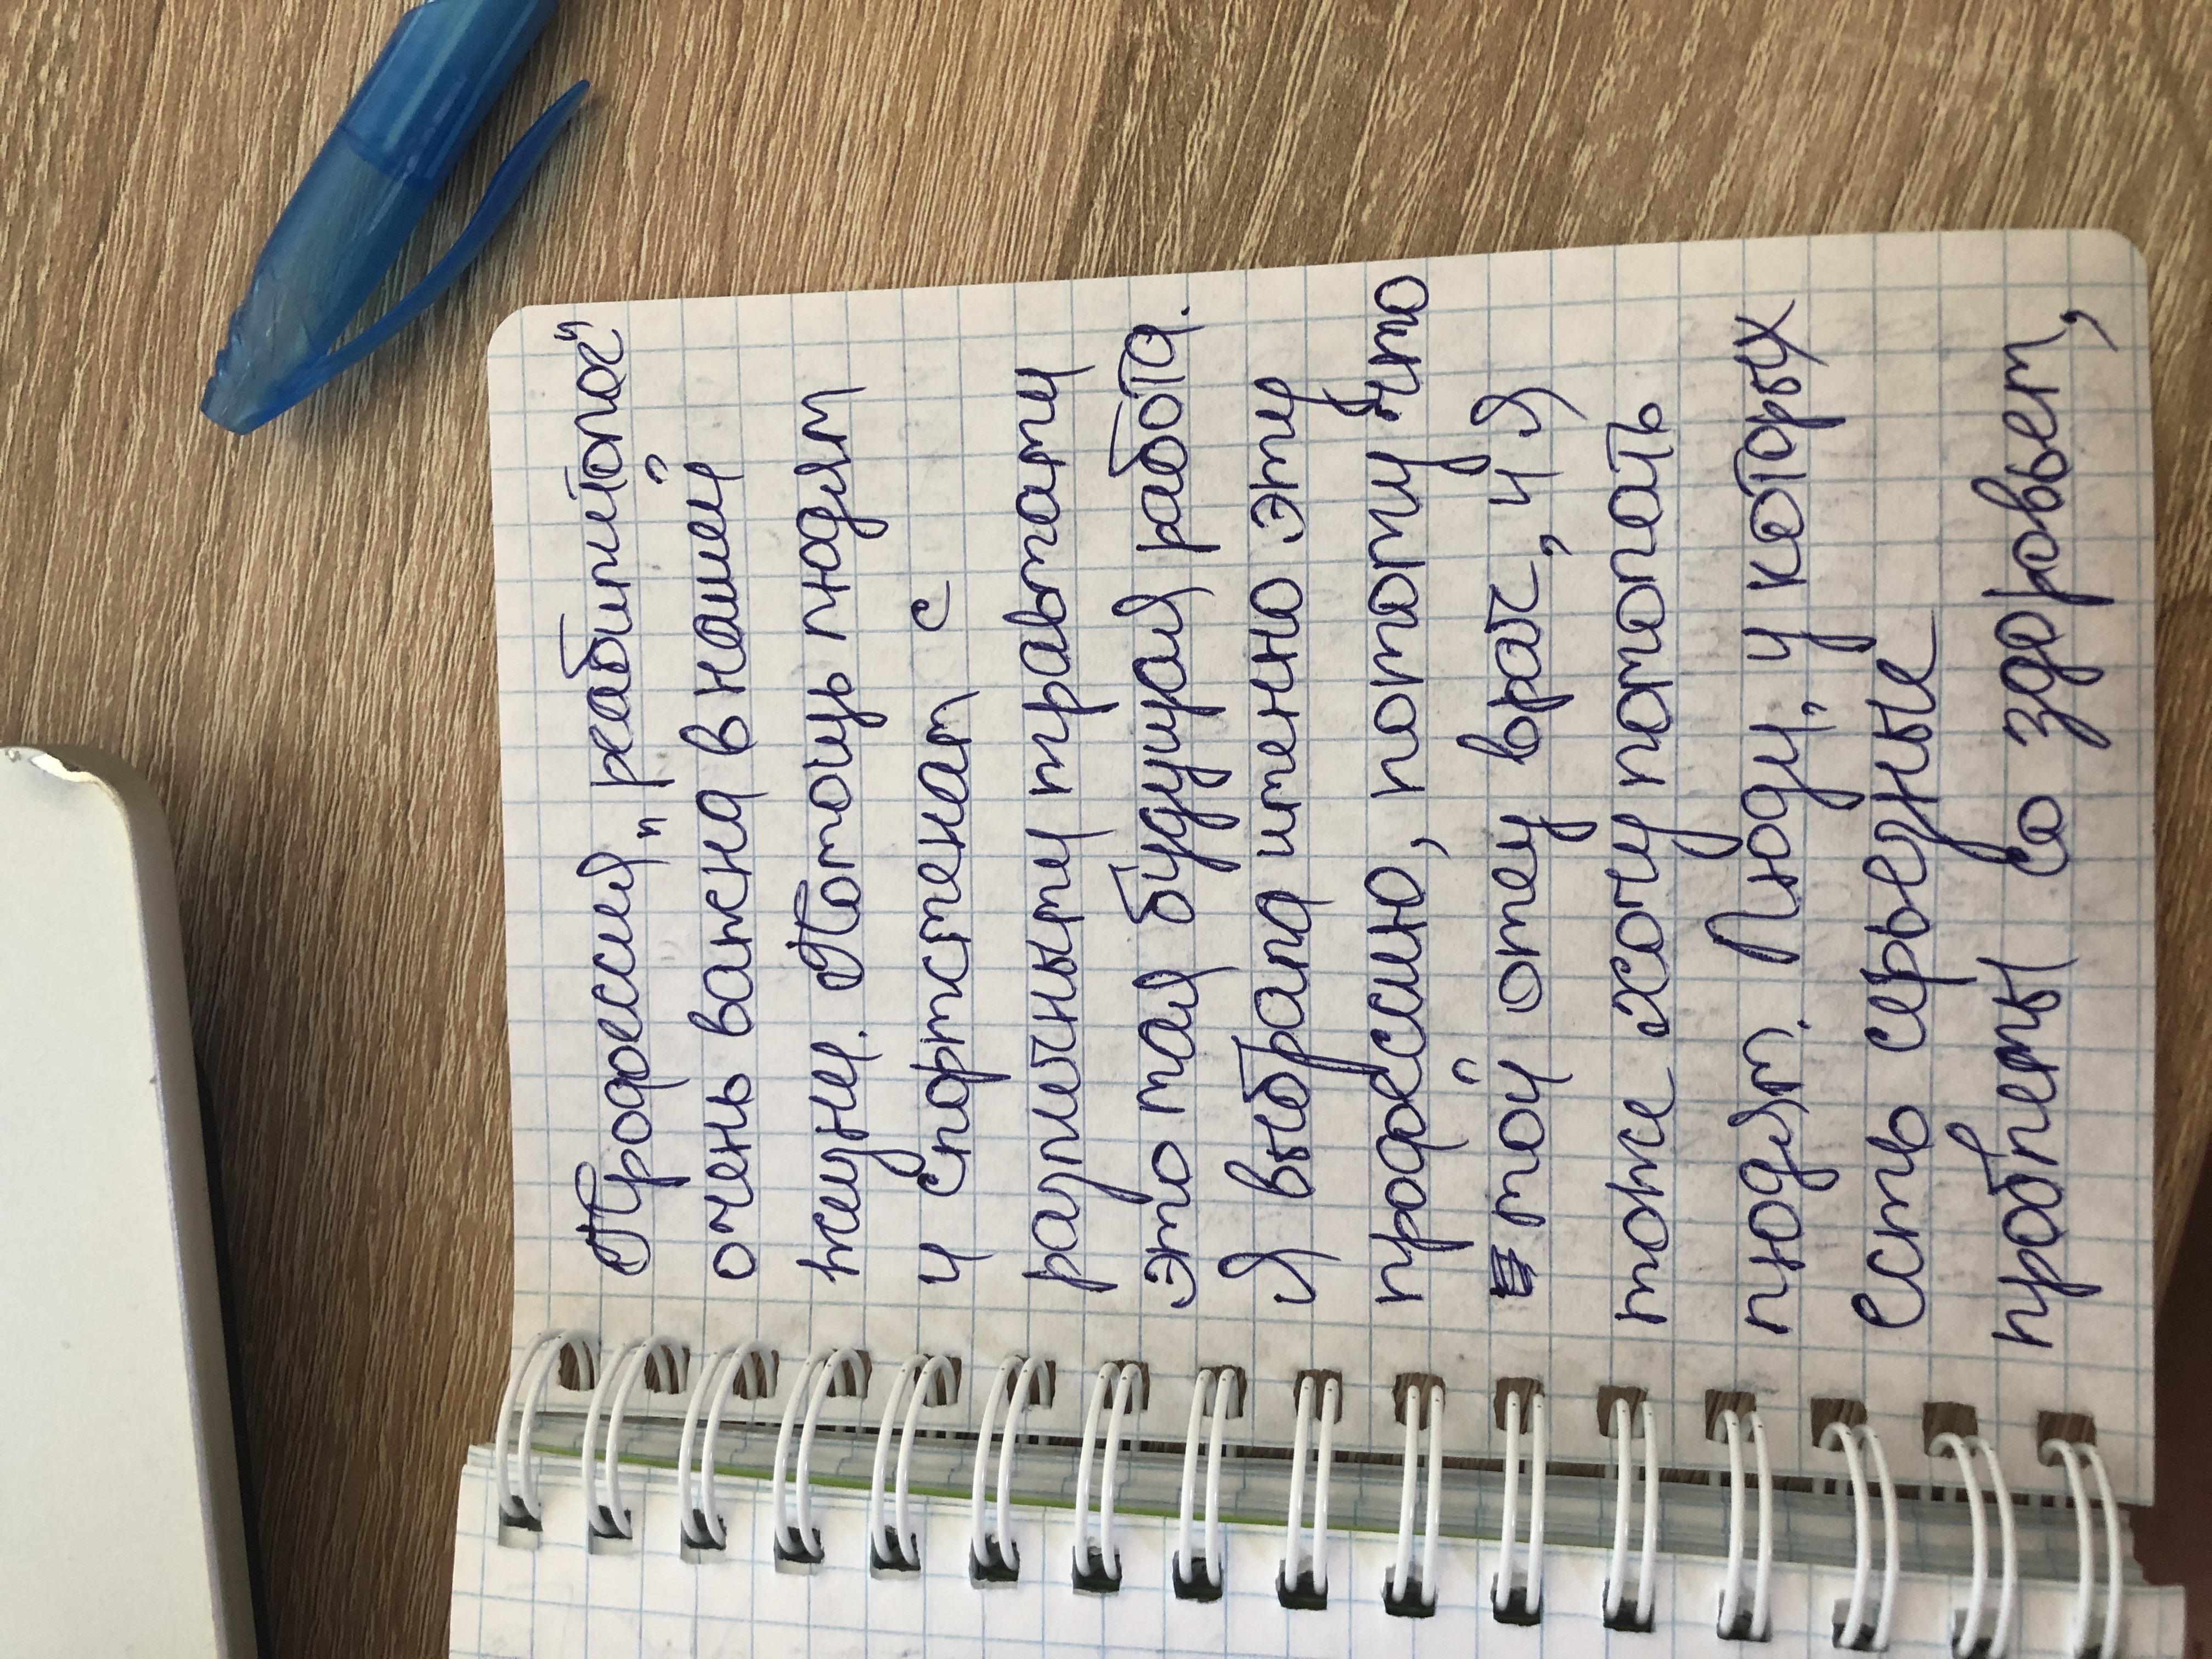 Профессия „реабилитолог"
очень важна в нашей
жизни. Помощь людям
и спортсменам с
различными травмами
это моя будущая работа.
Я выбрала именно эту
профессию, потому что
мой отец врач, и я
тоже хочу помогать
людям. Люди, у которых
есть серьезные
проблемы со здоровьем,